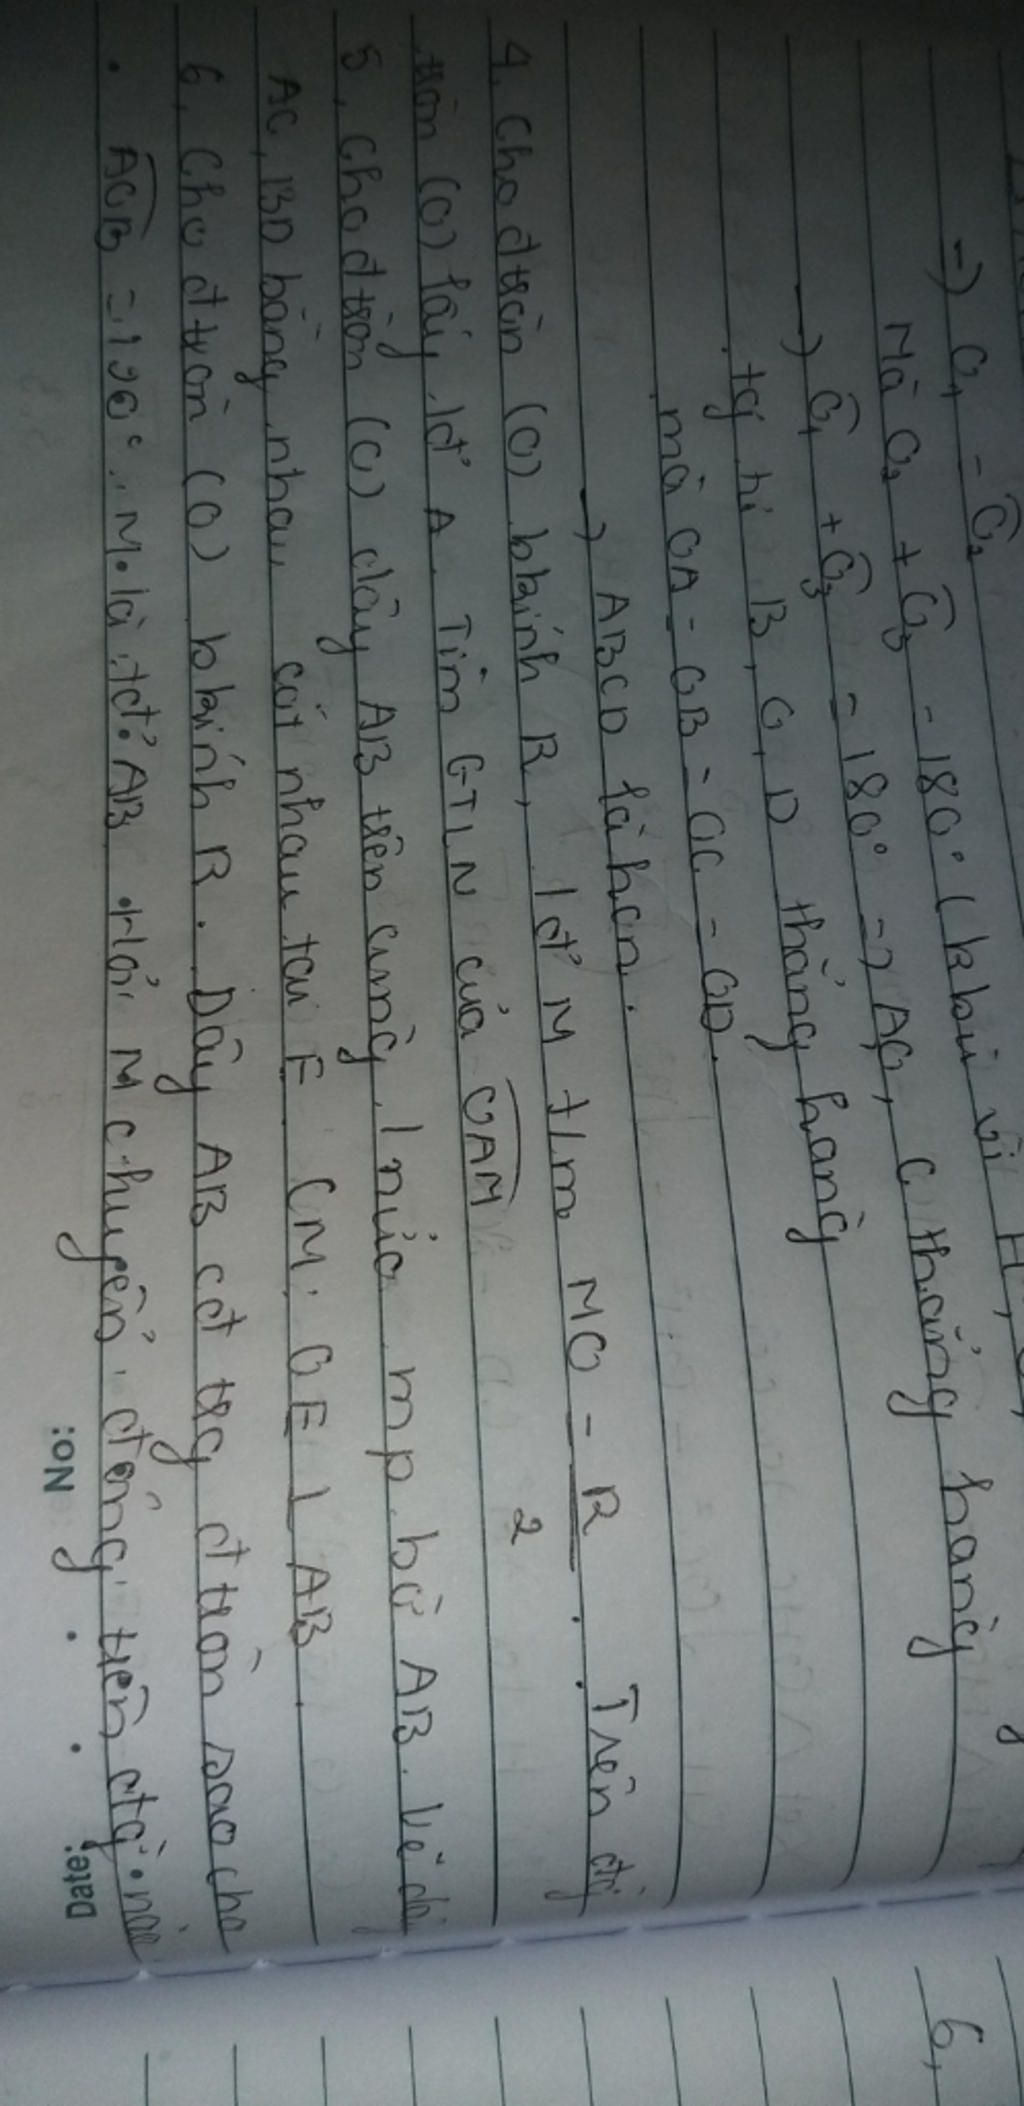 -) O₁ = O₂
Mà O₂ + O₃ = 180° (kbù vì H,
-) O₁ + O₃ = 180° -) A, O, C thẳng hàng
tg tự B, O, D thẳng hàng
mà OA = OB = OC = OD.
-) ABCD là hcn.
4, Cho đtròn (O) bkính R, 1đ' M t/m MO = R/2. Trên đg
tròn (O) lấy 1đ' A. Tìm GTLN của OAM
5, Cho đtròn (O) dây AB trên cùng 1 nửa mp bờ AB. Vẽ dây
AC, BD bằng nhau cắt nhau tại E. CM: OE ⊥ AB
6, Cho đtròn (O) bkính R. Dây AB cđ trg đtròn sao cho
AOB = 120°. M là tđ' AB. Hỏi M chuyển động trên đg nào
No:
Date:
6,